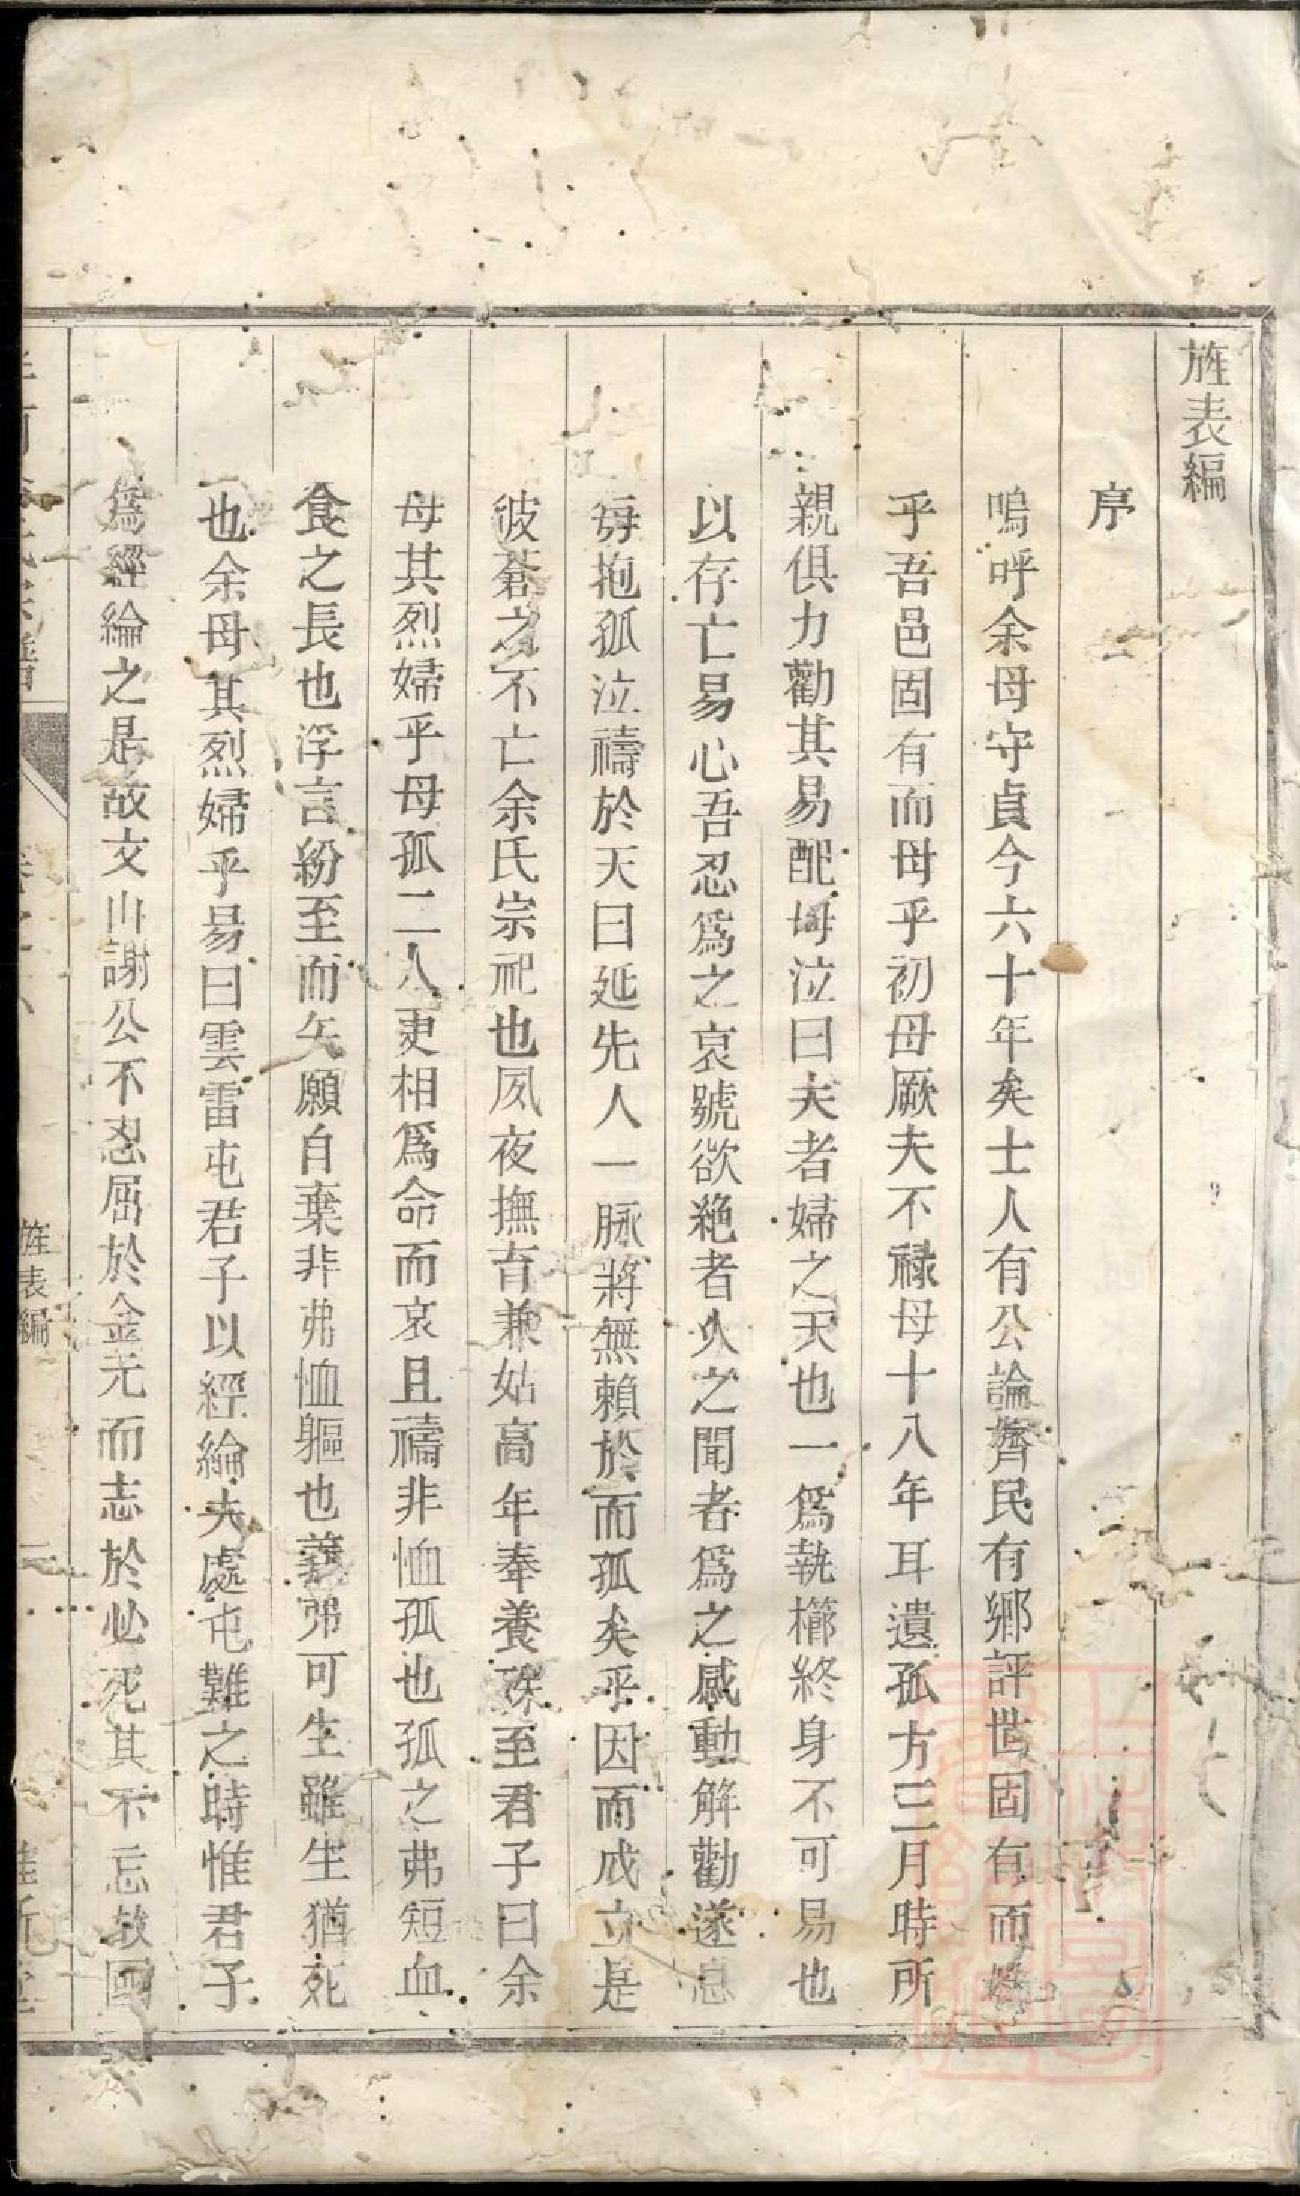 旌表編
序
嗚呼余母守貞今六十年矣士人有公論齊民有鄉評世固有而
乎吾邑固有而母乎初母厥夫不祿母十八年耳遺孤方三月時所
親俱力勸其易配母泣曰夫者婦之天也一爲執櫛終身不可易也
以存亡易心吾忍爲之哀號欲絶者久之聞者爲之感動解勸遂息
每抱孤泣禱於天曰延先人一脉將無賴於而孤矣乎因而成立是
彼蒼之不亡余氏宗祀也夙夜撫育兼姑高年奉養殊至君子曰余
母其烈婦乎母孤二人更相爲命而哀且禱非恤孤也孤之弗短血
食之長也浮言紛至而矢願自棄非弗恤軀也義弗可生雖生猶死
也余母其烈婦乎易曰雲雷屯君子以經綸夫處屯難之時惟君子
爲經綸之是故文山謝公不忍屈於金元而志於必死其不忘故國
旌表編